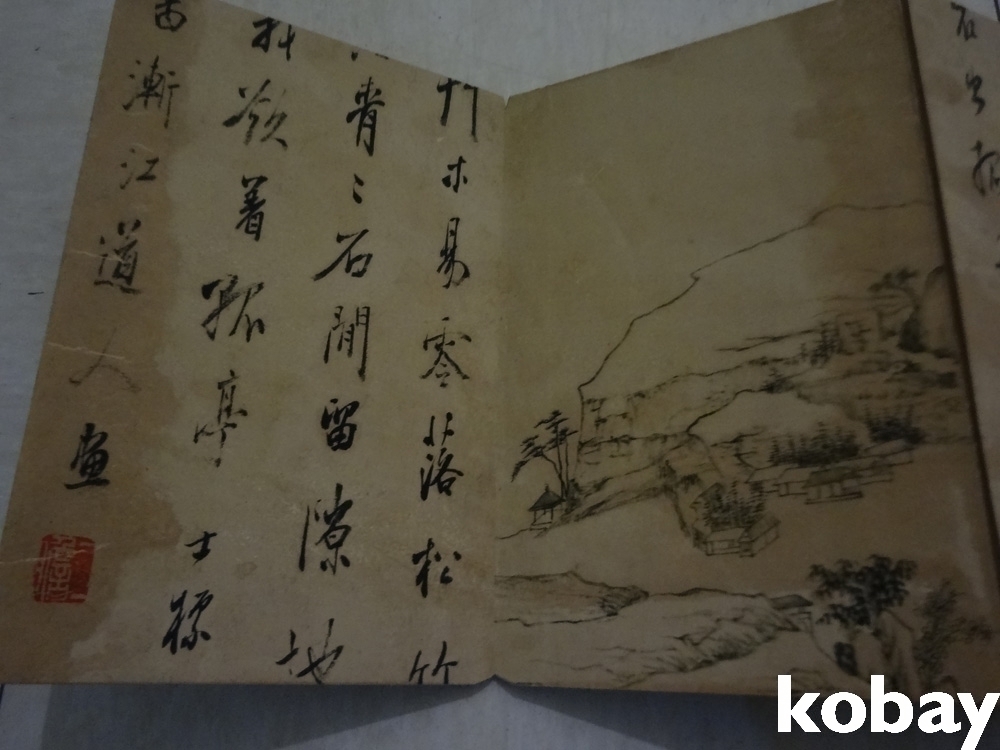 石
艸木易零落松竹
青〻石間留隙地
欲着孤亭 士標
漸江道人画
kobay